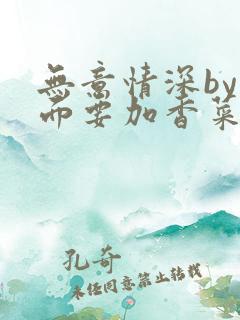 無意情深by
而要加香菜
孔奇
未经同意禁止转载